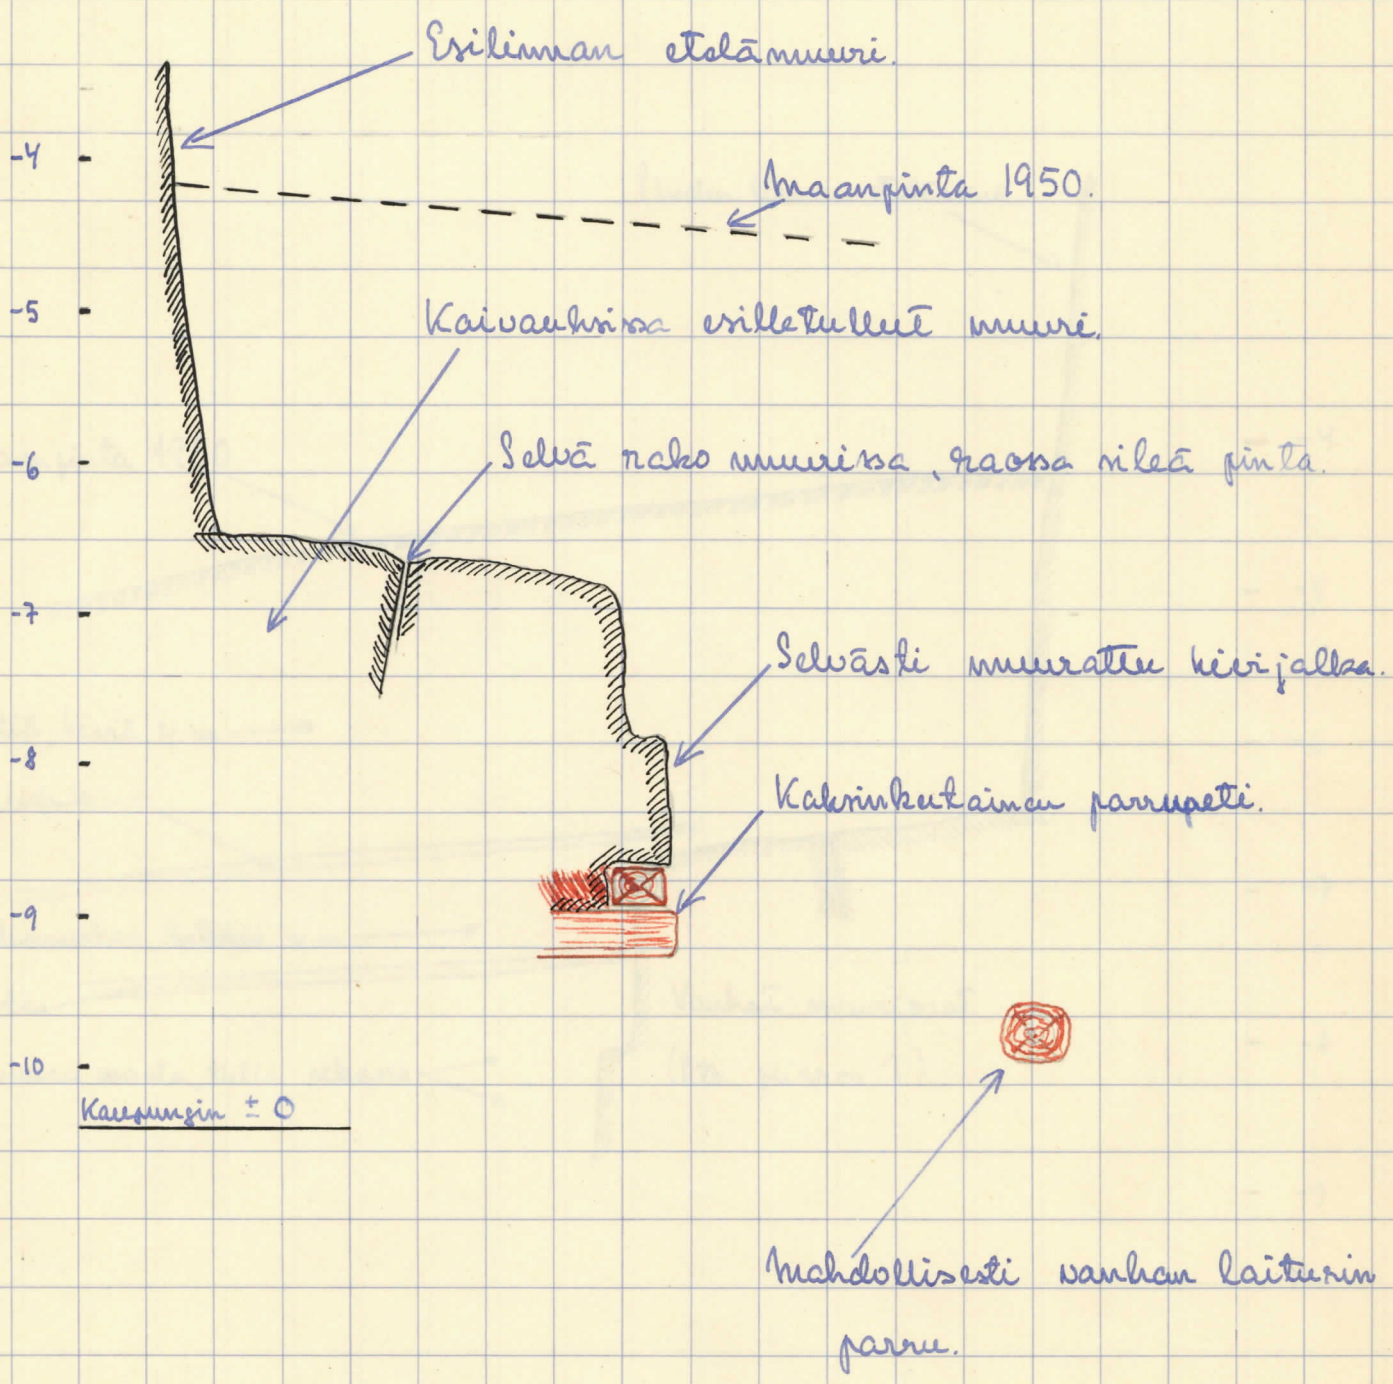 Esilinnan etelämuuri.
-4
Maanpinta 1950.
-5
Kaivauksissa esilletullut muuri.
-6
Selvä rako muurissa, raossa sileä pinta.
-7
Selvästi muurattu kivijalka.
-8
Kaksinkertainen parrupeti.
-9
-10
Kaupungin ± 0
Mahdollisesti vanhan laiturin
parru.